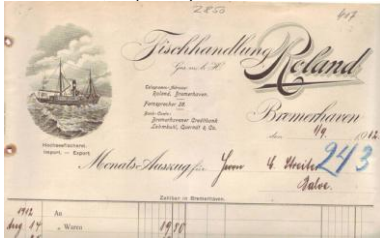 2850
Fischhandlung Roland
Ges. m. b. H.
Telegramm-Adresse:
Roland, Bremerhaven.
Fernsprecher 28.
Bank-Conto:
Bremerhavener Creditbank
Hochseefischerei.
Import. — Export.
Bremerhaven
den 1/9. 1912
243
Monats-Auszug für Herrn
Balve.
Zahlbar in Bremerhaven.
1912 An
Aug 14 " Waren 19 80